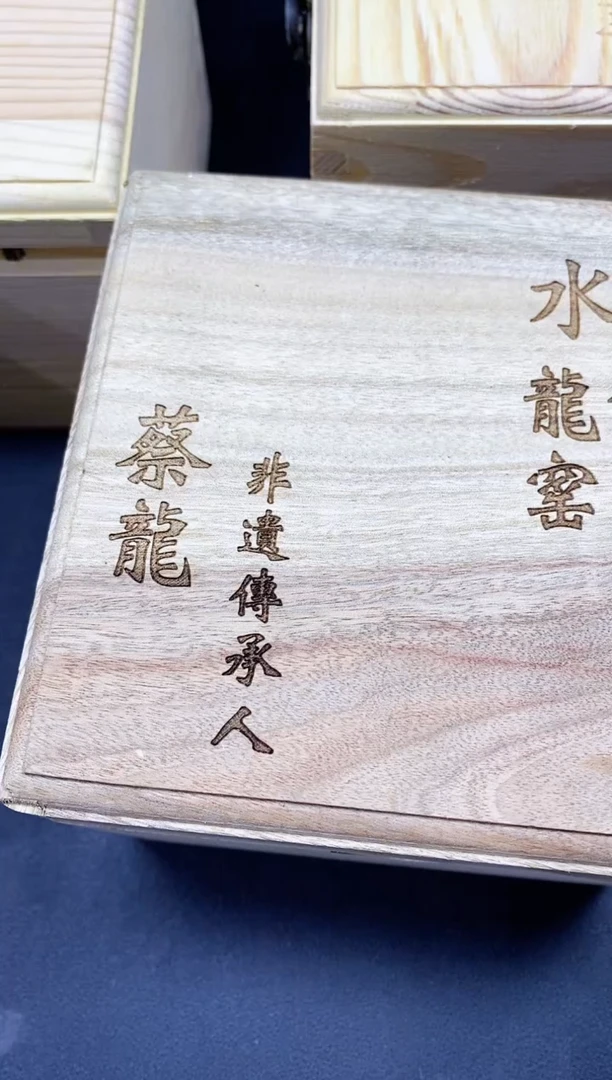 水龍窑
非遺傳承人
蔡龍